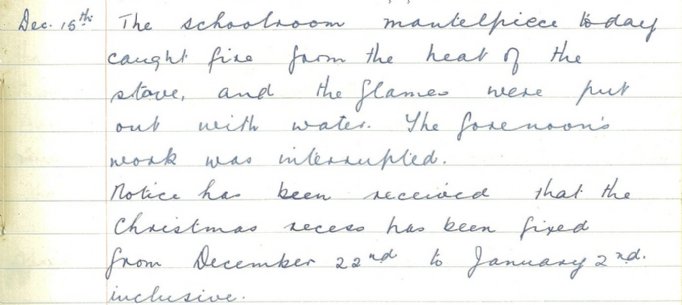 Dec. 15th The schoolroom mantelpiece today
caught fire from the heat of the
stove, and the flames were put
out with water. The forenoon's
work was interrupted.
Notice has been received that the
Christmas recess has been fixed
from December 22nd to January 2nd.
inclusive.